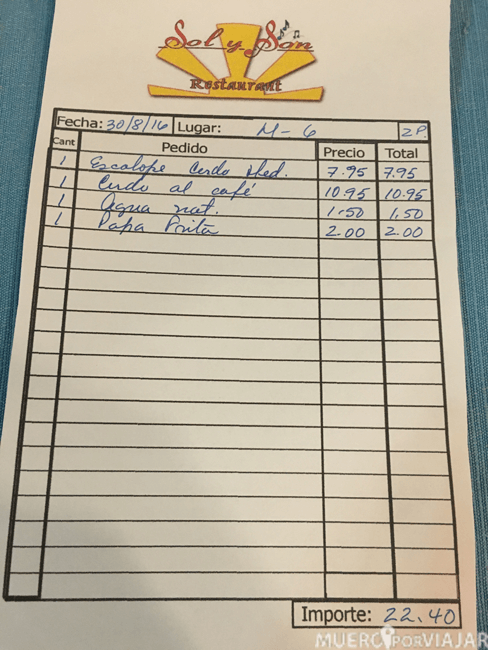 Sol y Son
Restaurant
Fecha: 30/8/16 Lugar: M-6 2P
Cant Pedido Precio Total
1 Escalope Cerdo Med. 7.95 7.95
1 Cerdo al café 10.95 10.95
1 Agua nat. 1.50 1.50
1 Papa Frita 2.00 2.00
Importe: 22.40
MUERO POR VIAJAR